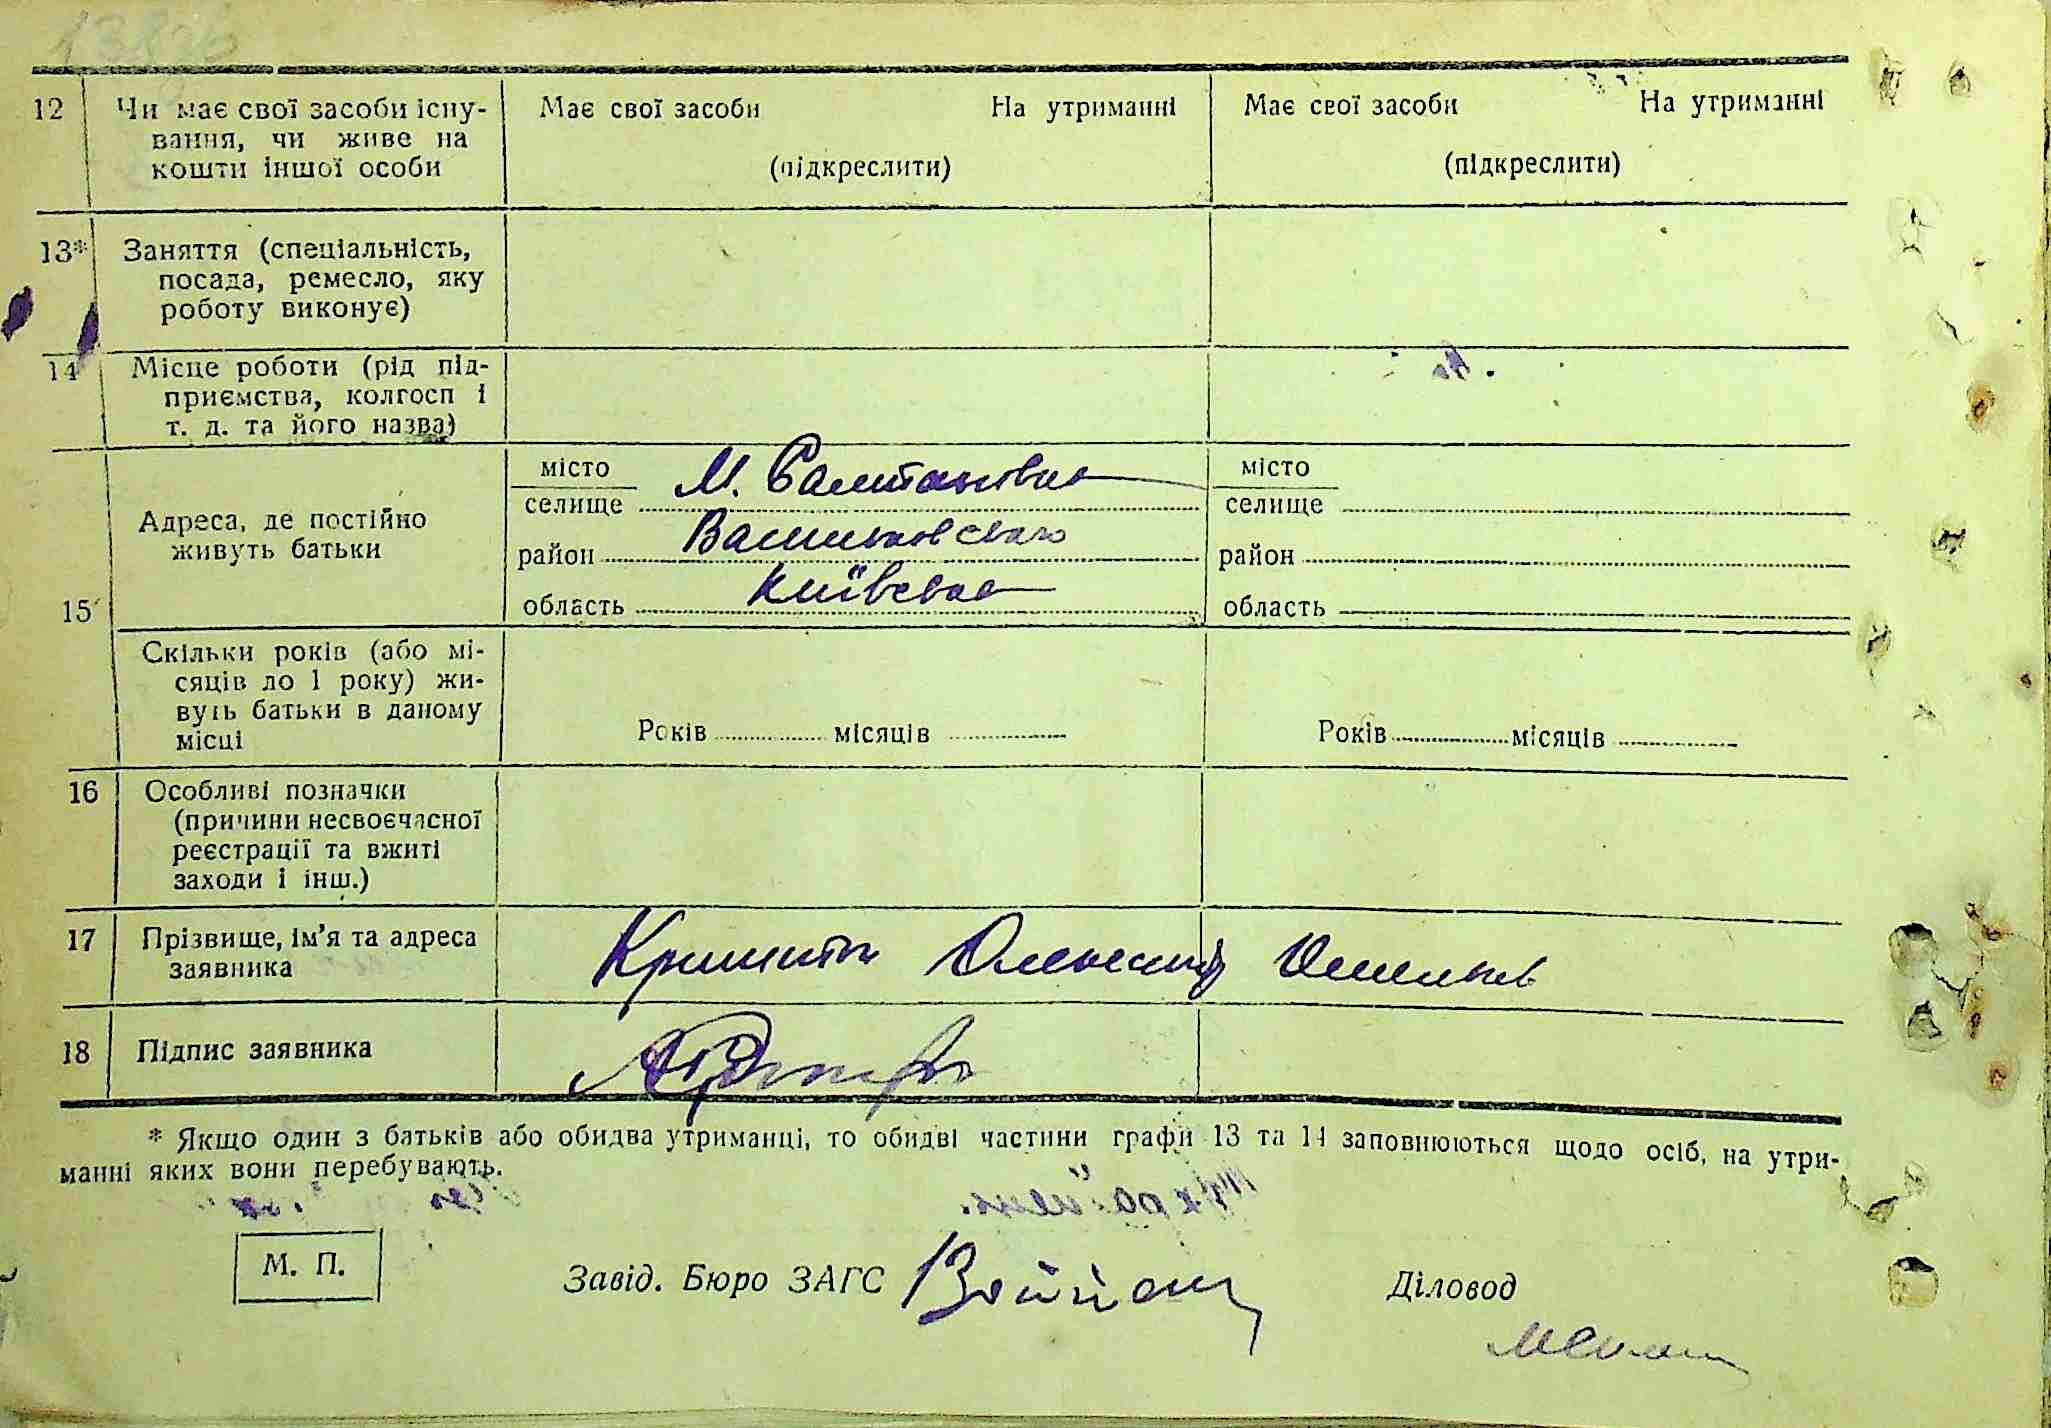 12 Чи має свої засоби існу-
вання, чи живе на
кошти іншої особи
Має свої засоби На утриманні
(підкреслити)
Має свої засоби На утриманні
(підкреслити)
13* Заняття (спеціальність,
посада, ремесло, яку
роботу виконує)
14 Місце роботи (рід під-
приємства, колгосп і
т. д. та його назва)
15 Адреса, де постійно
живуть батьки
місто
селище М. Салтановка
район Васильковского
область Київська
місто
селище
район
область
Скільки років (або мі-
сяців до 1 року) жи-
вуть батьки в даному
місці
Років місяців
Років місяців
16 Особливі позначки
(причини несвоєчасної
реєстрації та вжиті
заходи і інш.)
17 Прізвище, ім’я та адреса
заявника
18 Підпис заявника
* Якщо один з батьків або обидва утриманці, то обидві частини графи 13 та 14 заповнюються щодо осіб, на утри-
манні яких вони перебувають.
М. П.
Завід. Бюро ЗАГС
Діловод